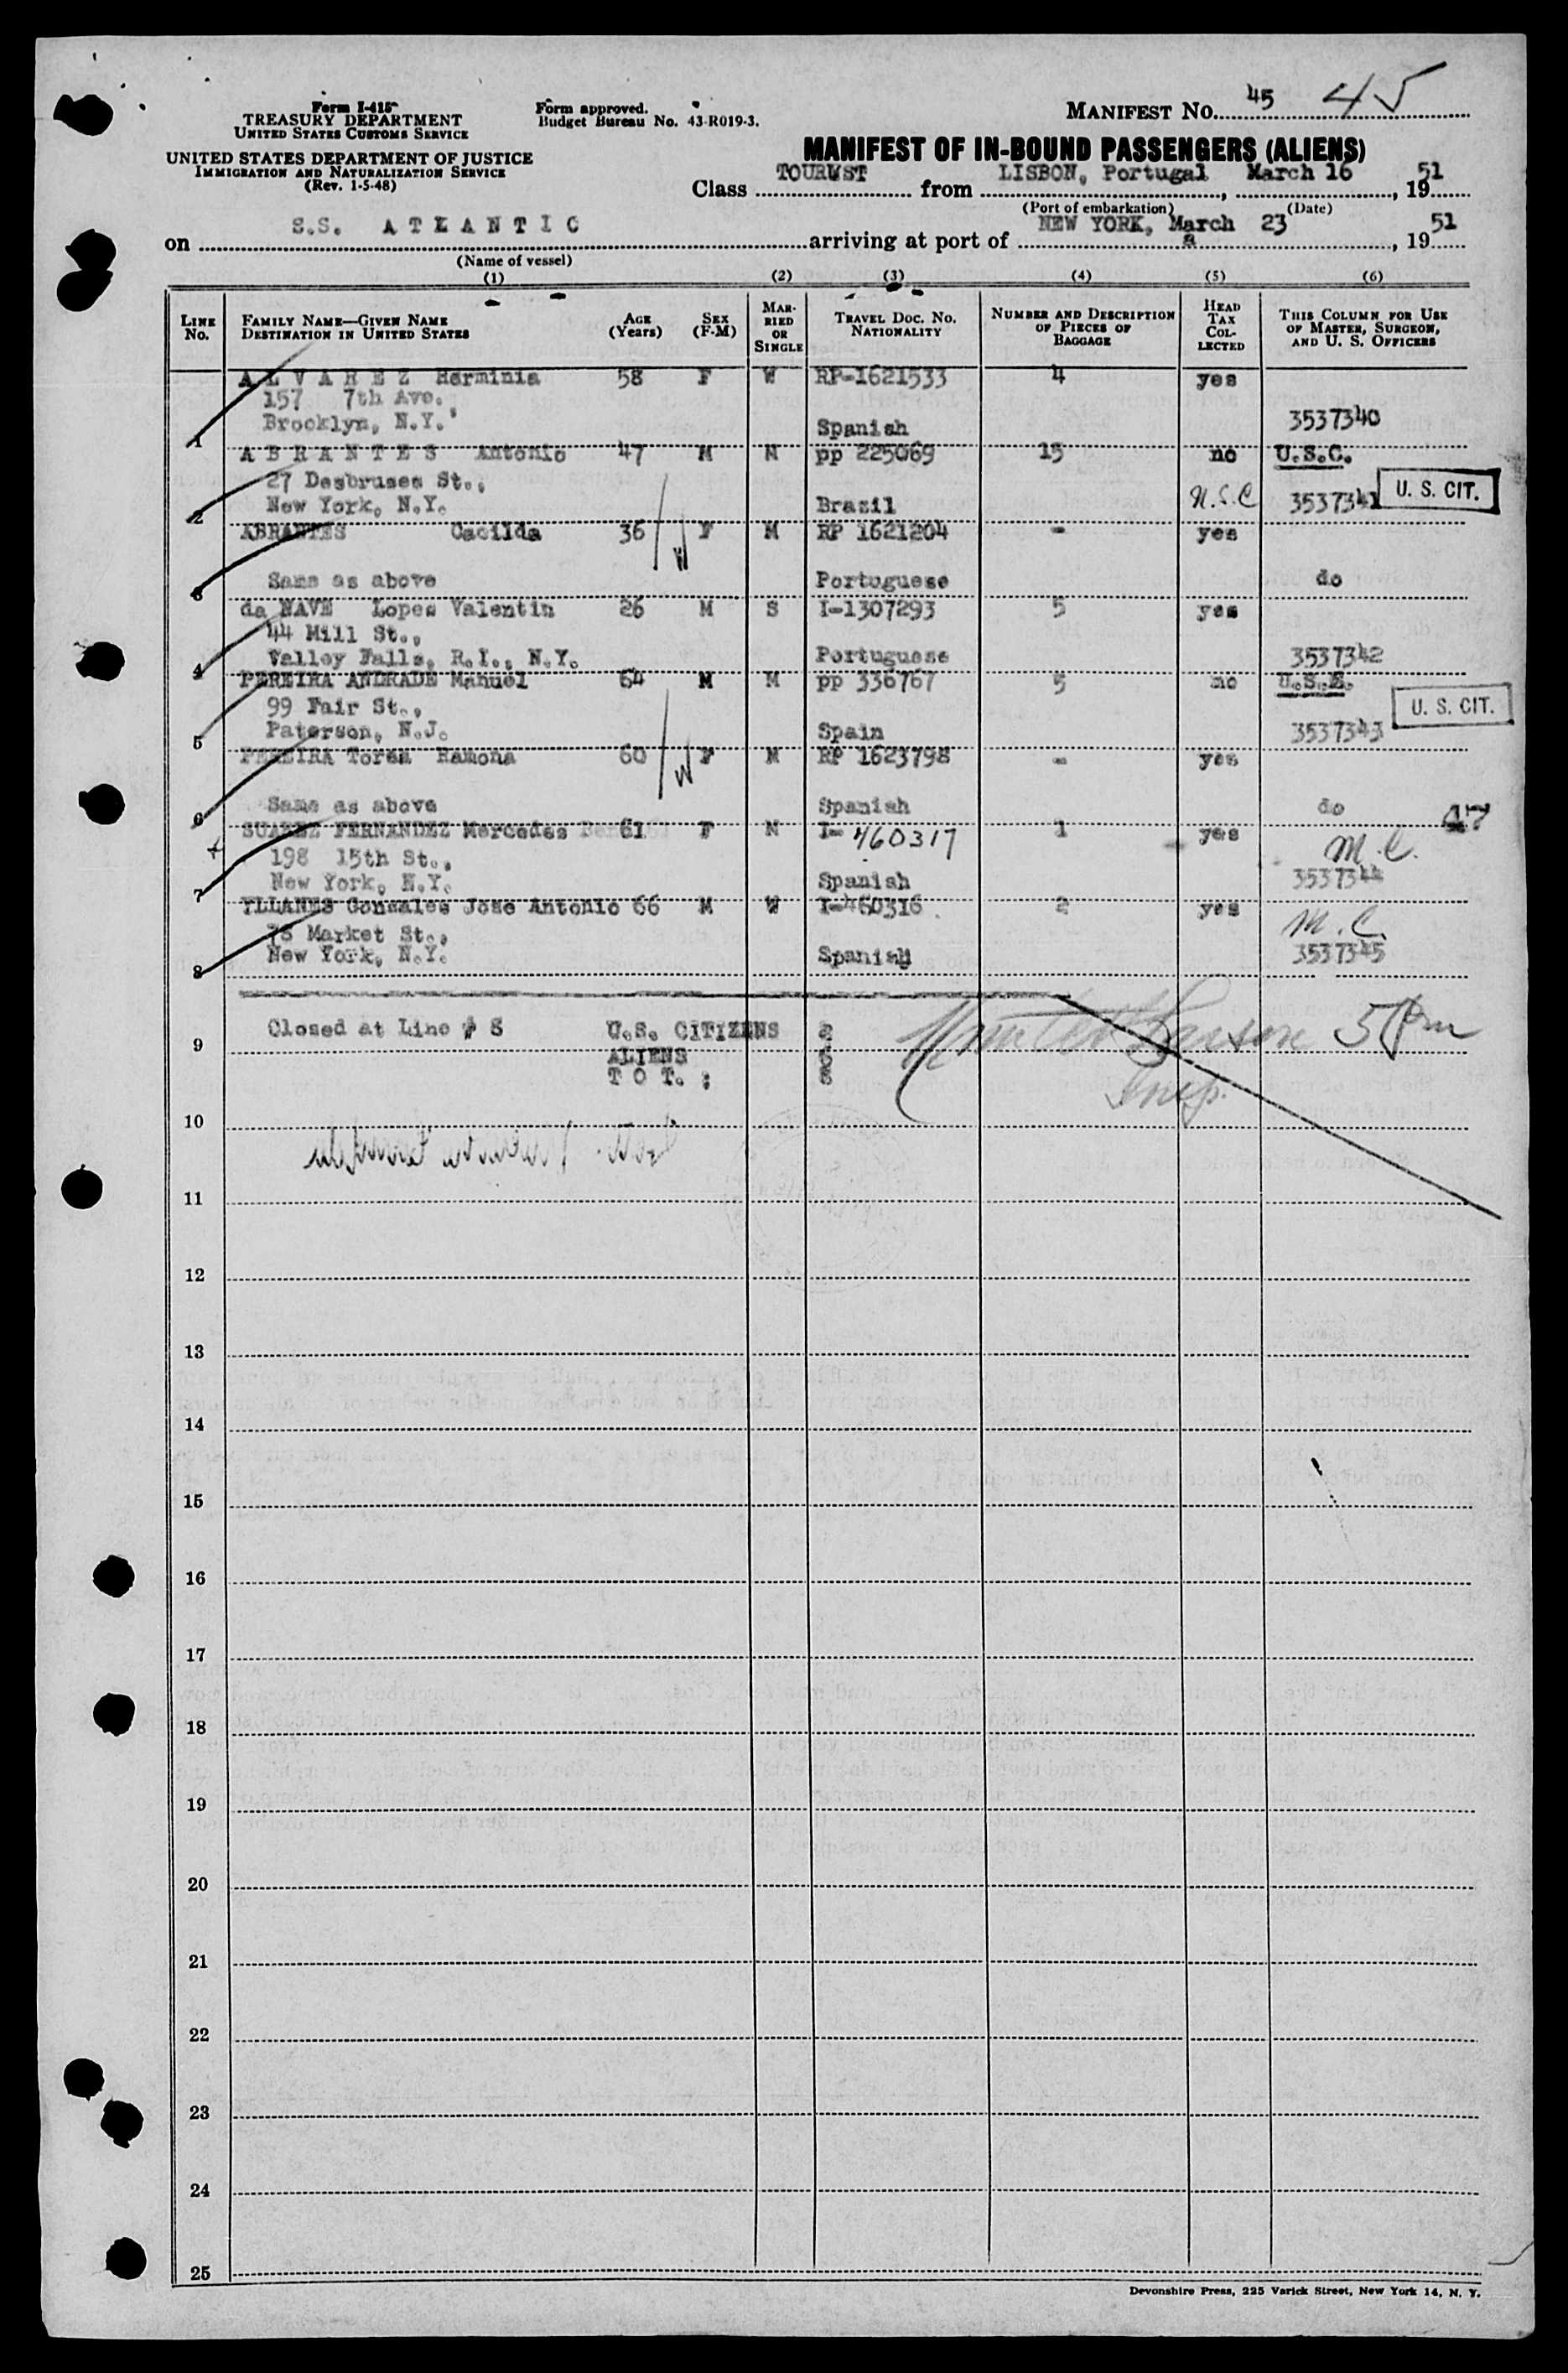 Form I-415
TREASURY DEPARTMENT
UNITED STATES CUSTOMS SERVICE
UNITED STATES DEPARTMENT OF JUSTICE
IMMIGRATION AND NATURALIZATION SERVICE
(Rev. 1-5-48)
Form approved.
Budget Bureau No. 43-R019-3.
MANIFEST No. 45 45
MANIFEST OF IN-BOUND PASSENGERS (ALIENS)
Class TOURIST from LISBON, Portugal, March 16, 1951
(Port of embarkation) (Date)
on S.S. ATLANTIC arriving at port of NEW YORK, March 23, 1951
(Name of vessel)
(1) (2) (3) (4) (5) (6)
LINE No. FAMILY NAME—GIVEN NAME DESTINATION IN UNITED STATES AGE (Years) SEX (F-M) MARRIED OR SINGLE TRAVEL DOC. NO. NATIONALITY NUMBER AND DESCRIPTION OF PIECES OF BAGGAGE HEAD TAX COLLECTED THIS COLUMN FOR USE OF MASTER, SURGEON, AND U. S. OFFICERS
A L V A R E Z Herminia 58 F W RP-1621533 4 yes
157 7th Ave.
Brooklyn, N.Y. Spanish 3537340
1
A B R A N T E S Antonio 47 M M pp 225069 15 no U.S.C.
27 Desbruses St.,
New York, N.Y. Brazil U.S.C 3537341 U. S. CIT.
2
ABRANTES Cacilda 36 W F M RP 1621204 - yes
Same as above Portuguese do
3
da NAVE Lopes Valentin 26 M S I-1307293 5 yes
44 Mill St.,
Valley Falls, R.I., N.Y. Portuguese 3537342
4
PEREIRA ANDRADE Manuel 64 M M pp 336767 5 no
99 Fair St.,
Paterson, N.J. Spain 3537343 U. S. CIT.
5
PEREIRA Torea Ramona 60 W F M RP 1623798 - yes
Same as above Spanish do
6
47
SUAREZ FERNANDEZ Mercedes 61 F M I-460317 1 yes M.C.
198 15th St.,
New York, N.Y. Spanish 3537344
7
YLLANES Gonzales Jose Antonio 66 M W I-460316 2 yes M.C.
78 Market St.,
New York, N.Y. Spanish 3537345
8
Closed at Line # 8 U.S. CITIZENS
ALIENS
T O T. :
5 Pm
Insp.
9
10
11
12
13
14
15
16
17
18
19
20
21
22
23
24
25
Devonshire Press, 225 Varick Street, New York 14, N. Y.